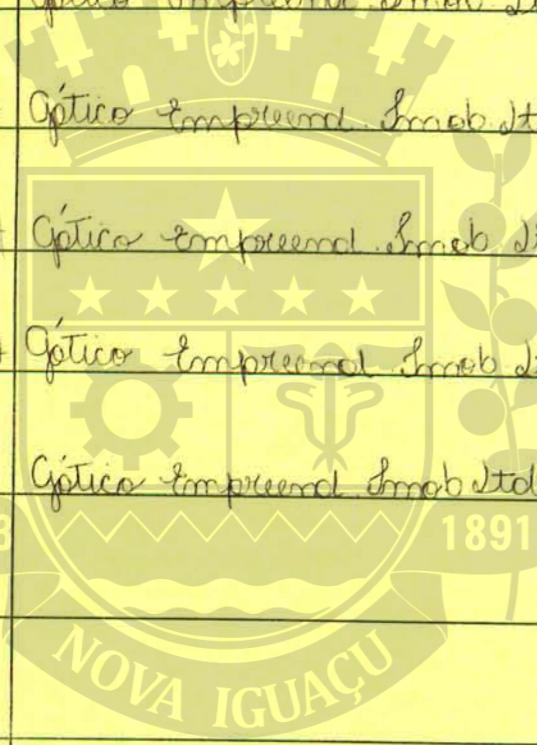 Gótico Empreend. Imob Lt
Gótico Empreend. Imob L
Gótico Empreend. Imob L
Gótico Empreend. Imob Ltd
1891
NOVA IGUAÇU